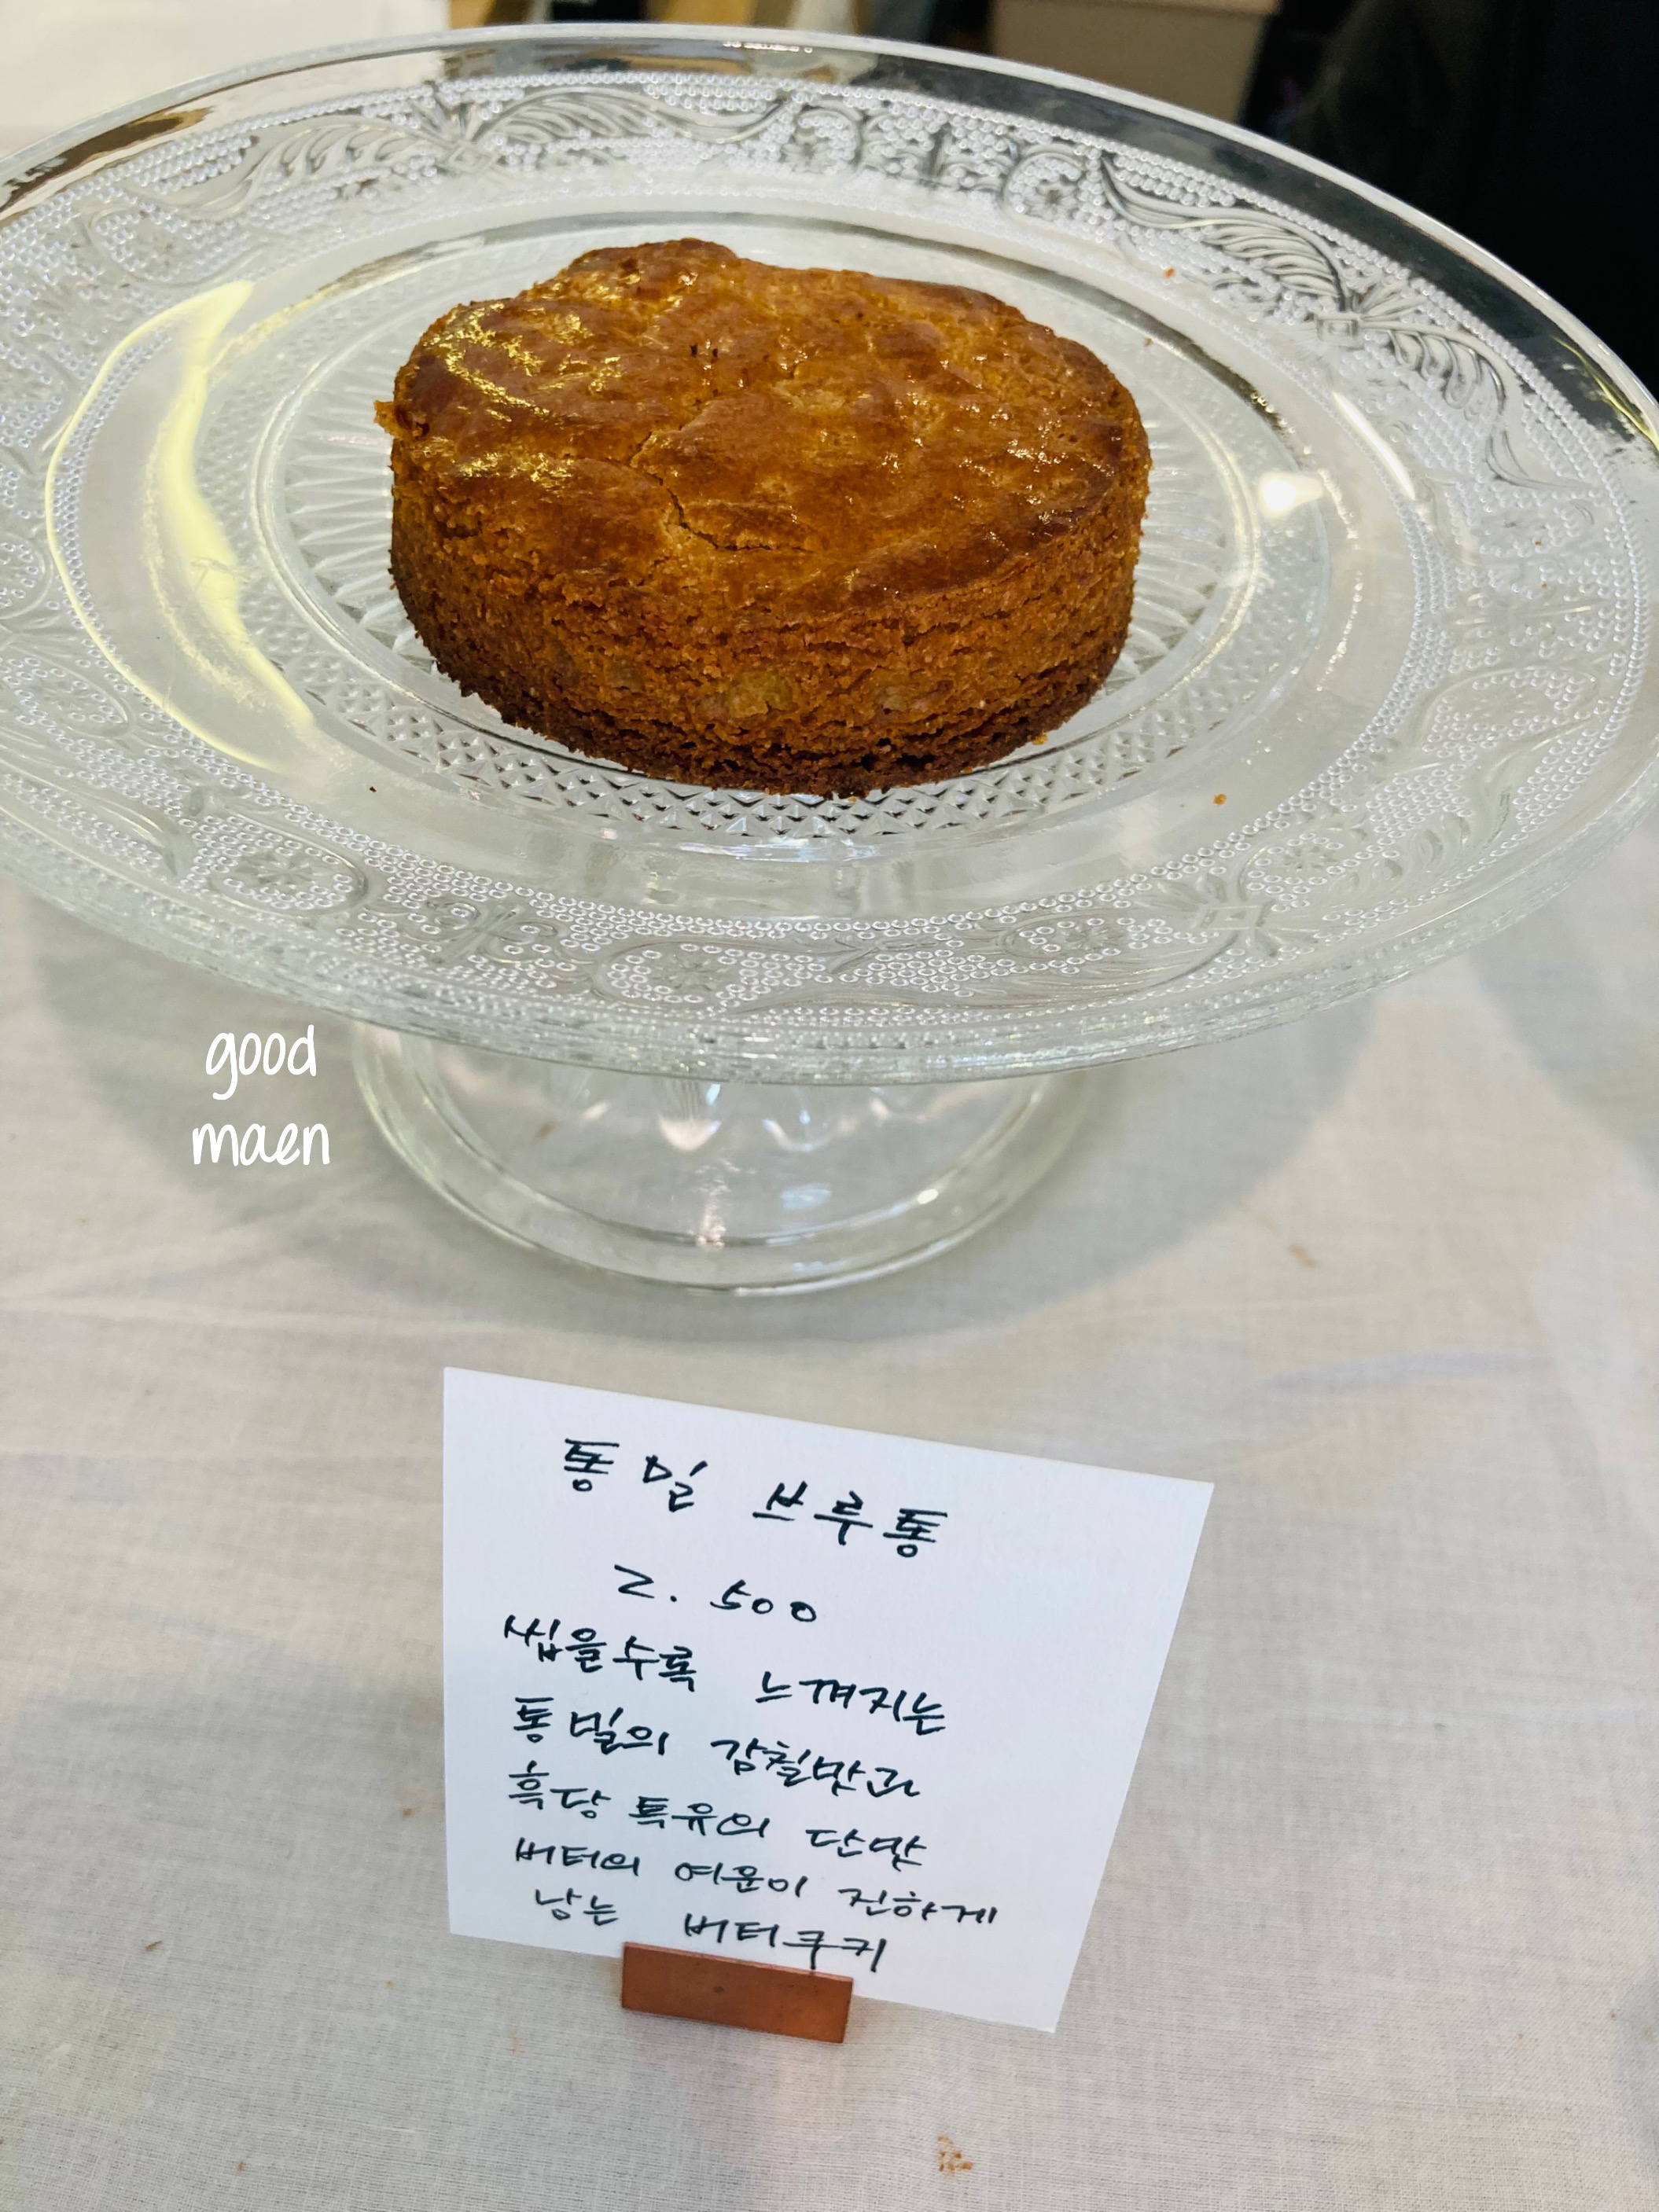 good
maen
통밀 브루통
2.500
씹을수록 느껴지는
통밀의 감칠맛과
흑당 특유의 단맛
버터의 여운이 진하게
남는 버터쿠키